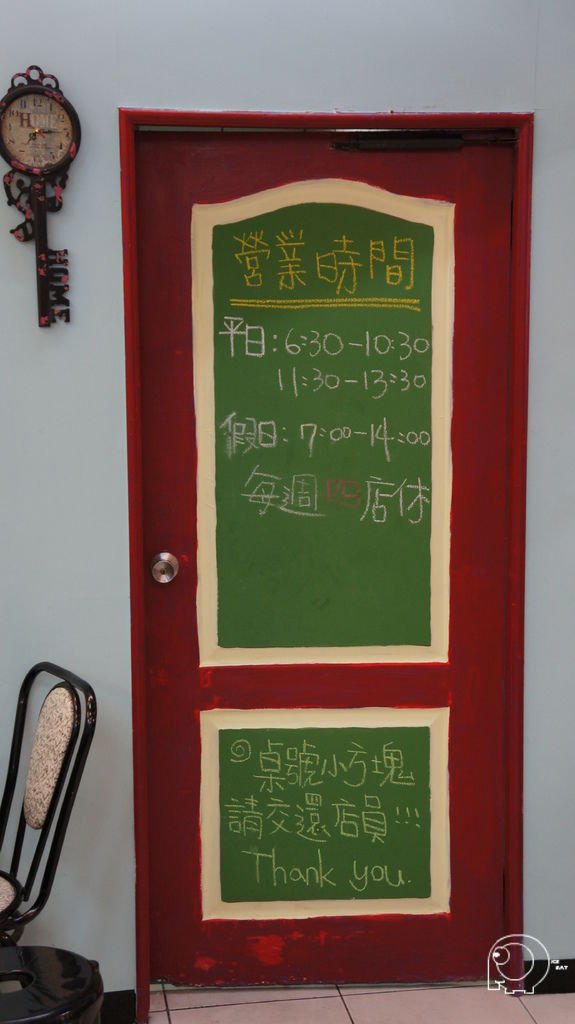 HOME
HOME
營業時間
平日:6:30-10:30
11:30-13:30
假日:7:00-14:00
每週四店休
◎桌號小方塊
請交還店員!!!
Thank you.
ICE
EAT